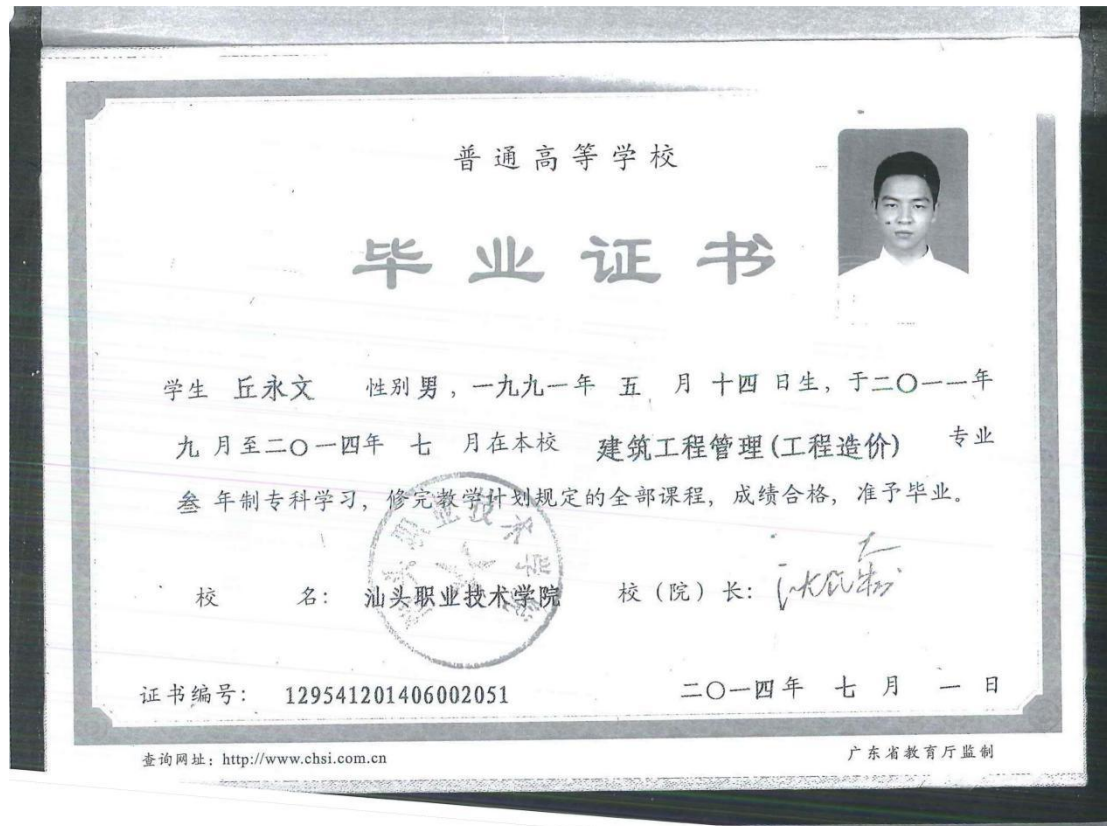 普通高等学校
毕业证书
学生 丘永文 性别 男，一九九一年 五 月 十四 日生，于二〇一一年
九 月至二〇一四年 七 月在本校 建筑工程管理(工程造价) 专业
叁 年制专科学习，修完教学计划规定的全部课程，成绩合格，准予毕业。
校 名： 汕头职业技术学院 校（院）长：
汕头职业技术学院
证书编号： 129541201406002051 二〇一四年 七 月 一 日
查询网址：http://www.chsi.com.cn 广东省教育厅监制